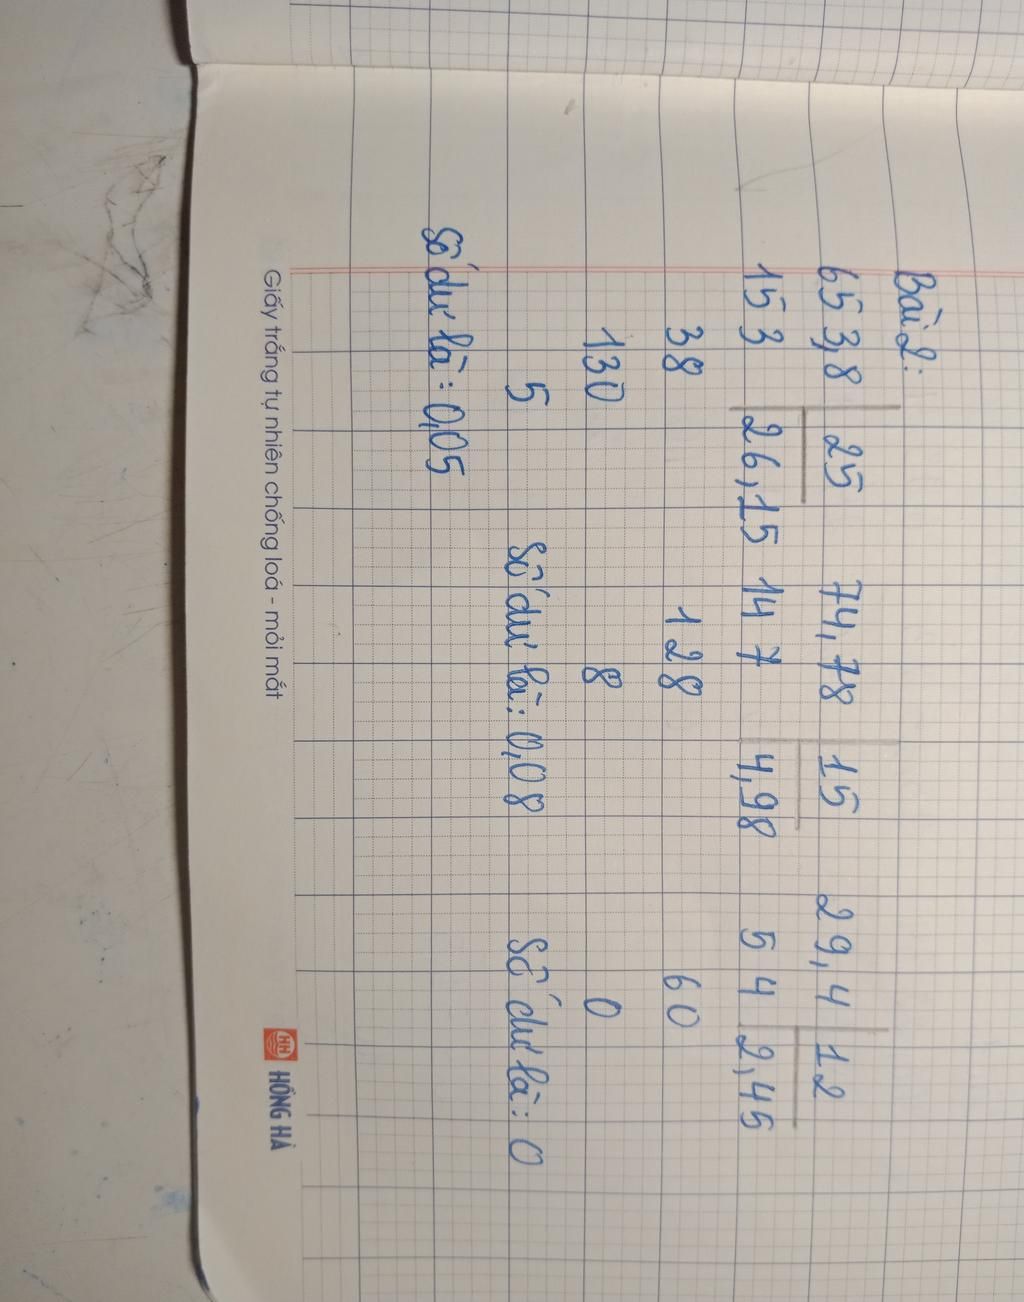 Bài 2:
653,8 25 74,78 15 29,4 12
153 26,15 14 7 4,98 5 4 2,45
38 128 60
130 8 0
5 Số dư là: 0,08 Số dư là: 0
Số dư là: 0,05
Giấy trắng tự nhiên chống loá - mỏi mắt HH HỒNG HÀ